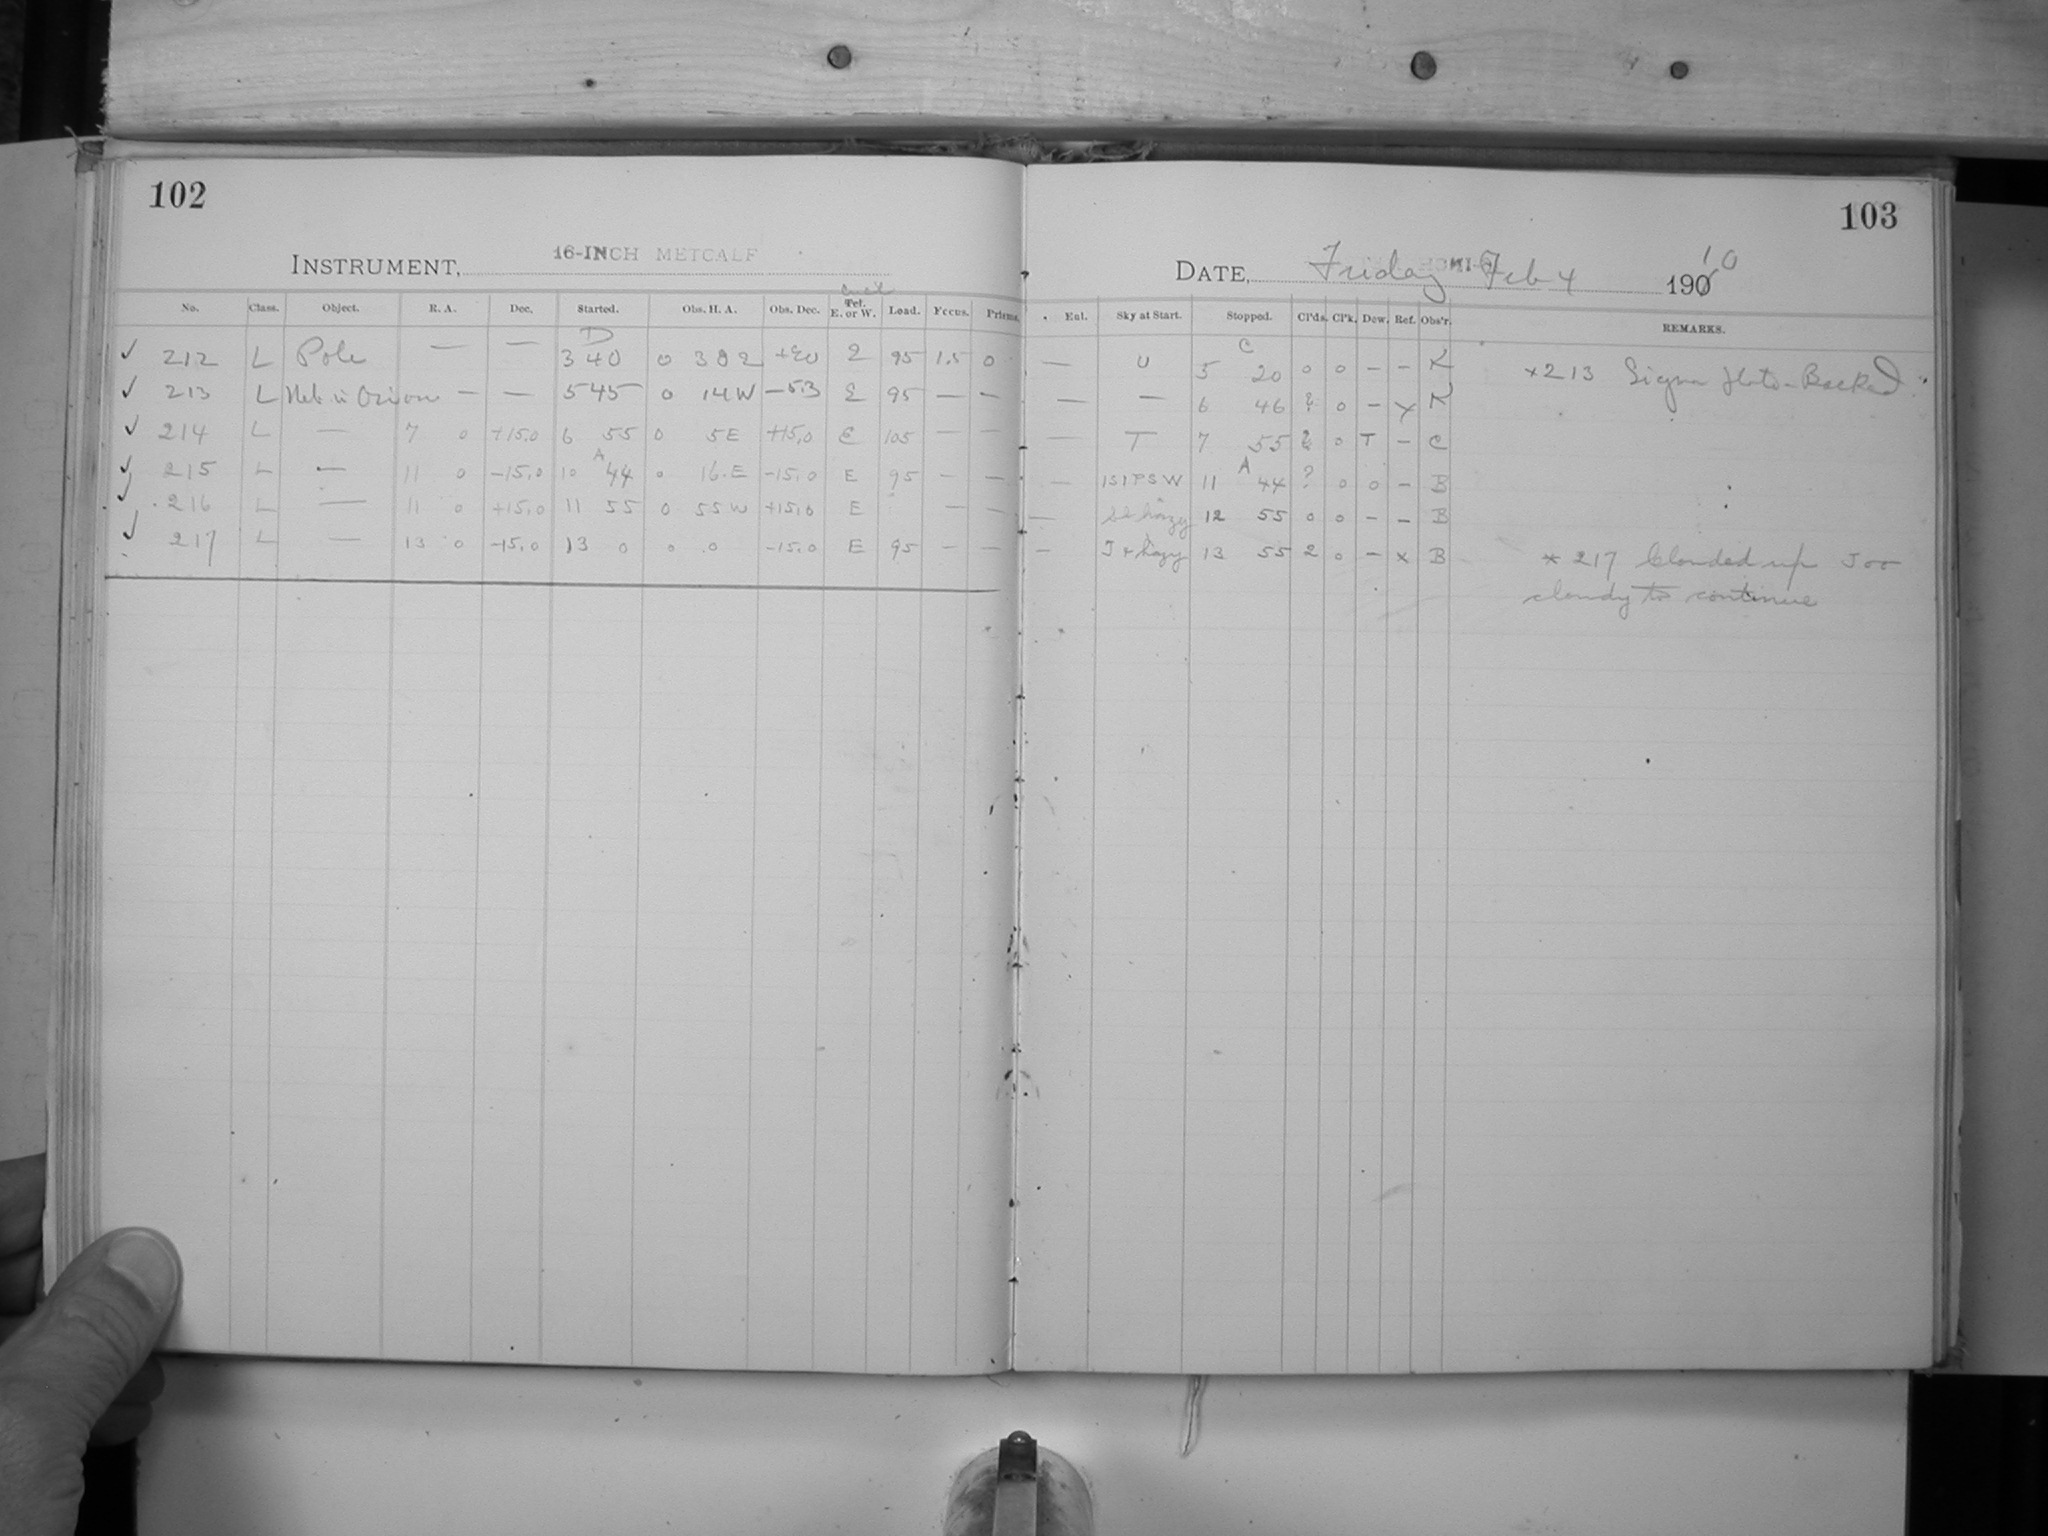 102
INSTRUMENT, 16-INCH METCALF
No. Class. Object. R. A. Dec. Started. Obs. H. A. Obs. Dec. Tel. E. or W. Load. Focus. Prisms.
D
✓ 212 L Pole — — 3 40 0 3 02 E 95 1.5 0
✓ 213 L Neb in Orion — — 5 45 0 14 W —5.3 E 95 — —
✓ 214 L — 7 0 +15.0 6 55 0 5 E +15.0 E 105 — —
A
✓ 215 L — 11 0 -15.0 10 44 0 16 E -15.0 E 95 — —
✓ 216 L — 11 0 +15.0 11 55 0 55 W +15.0 E — —
✓ 217 L — 13 0 -15.0 13 0 0 0 -15.0 E 95 — —
103
DATE, Friday Feb 4 1910
Ent. Sky at Start. Stopped. Cl'ds. Cl'k. Dew. Ref. Obs'r. REMARKS.
C
— U 5 20 0 0 — — K ×213 Sigma Plate-Backed
— — 6 46 ? 0 — × K
— T 7 55 0 T — C
A
— 11 44 ? 0 0 — B
— hazy 12 55 0 0 — — B
— hazy 13 55 2 0 — × B * 217 Clouded up Too
cloudy to continue